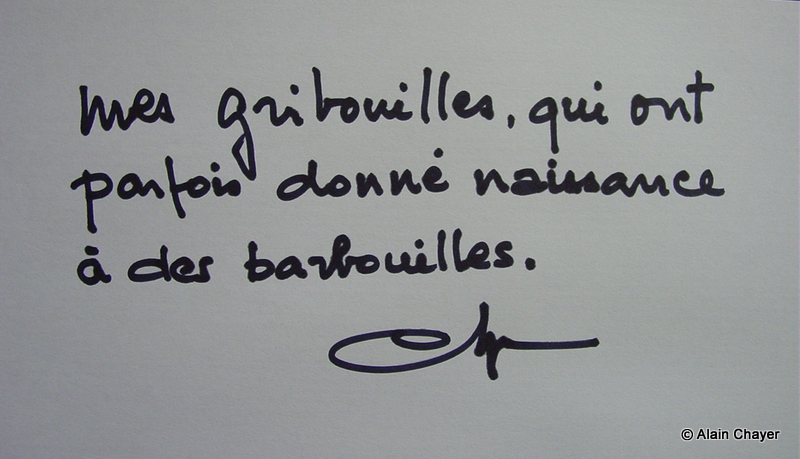 mes gribouilles, qui ont
parfois donné naissance
à des barbouilles.
© Alain Chayer